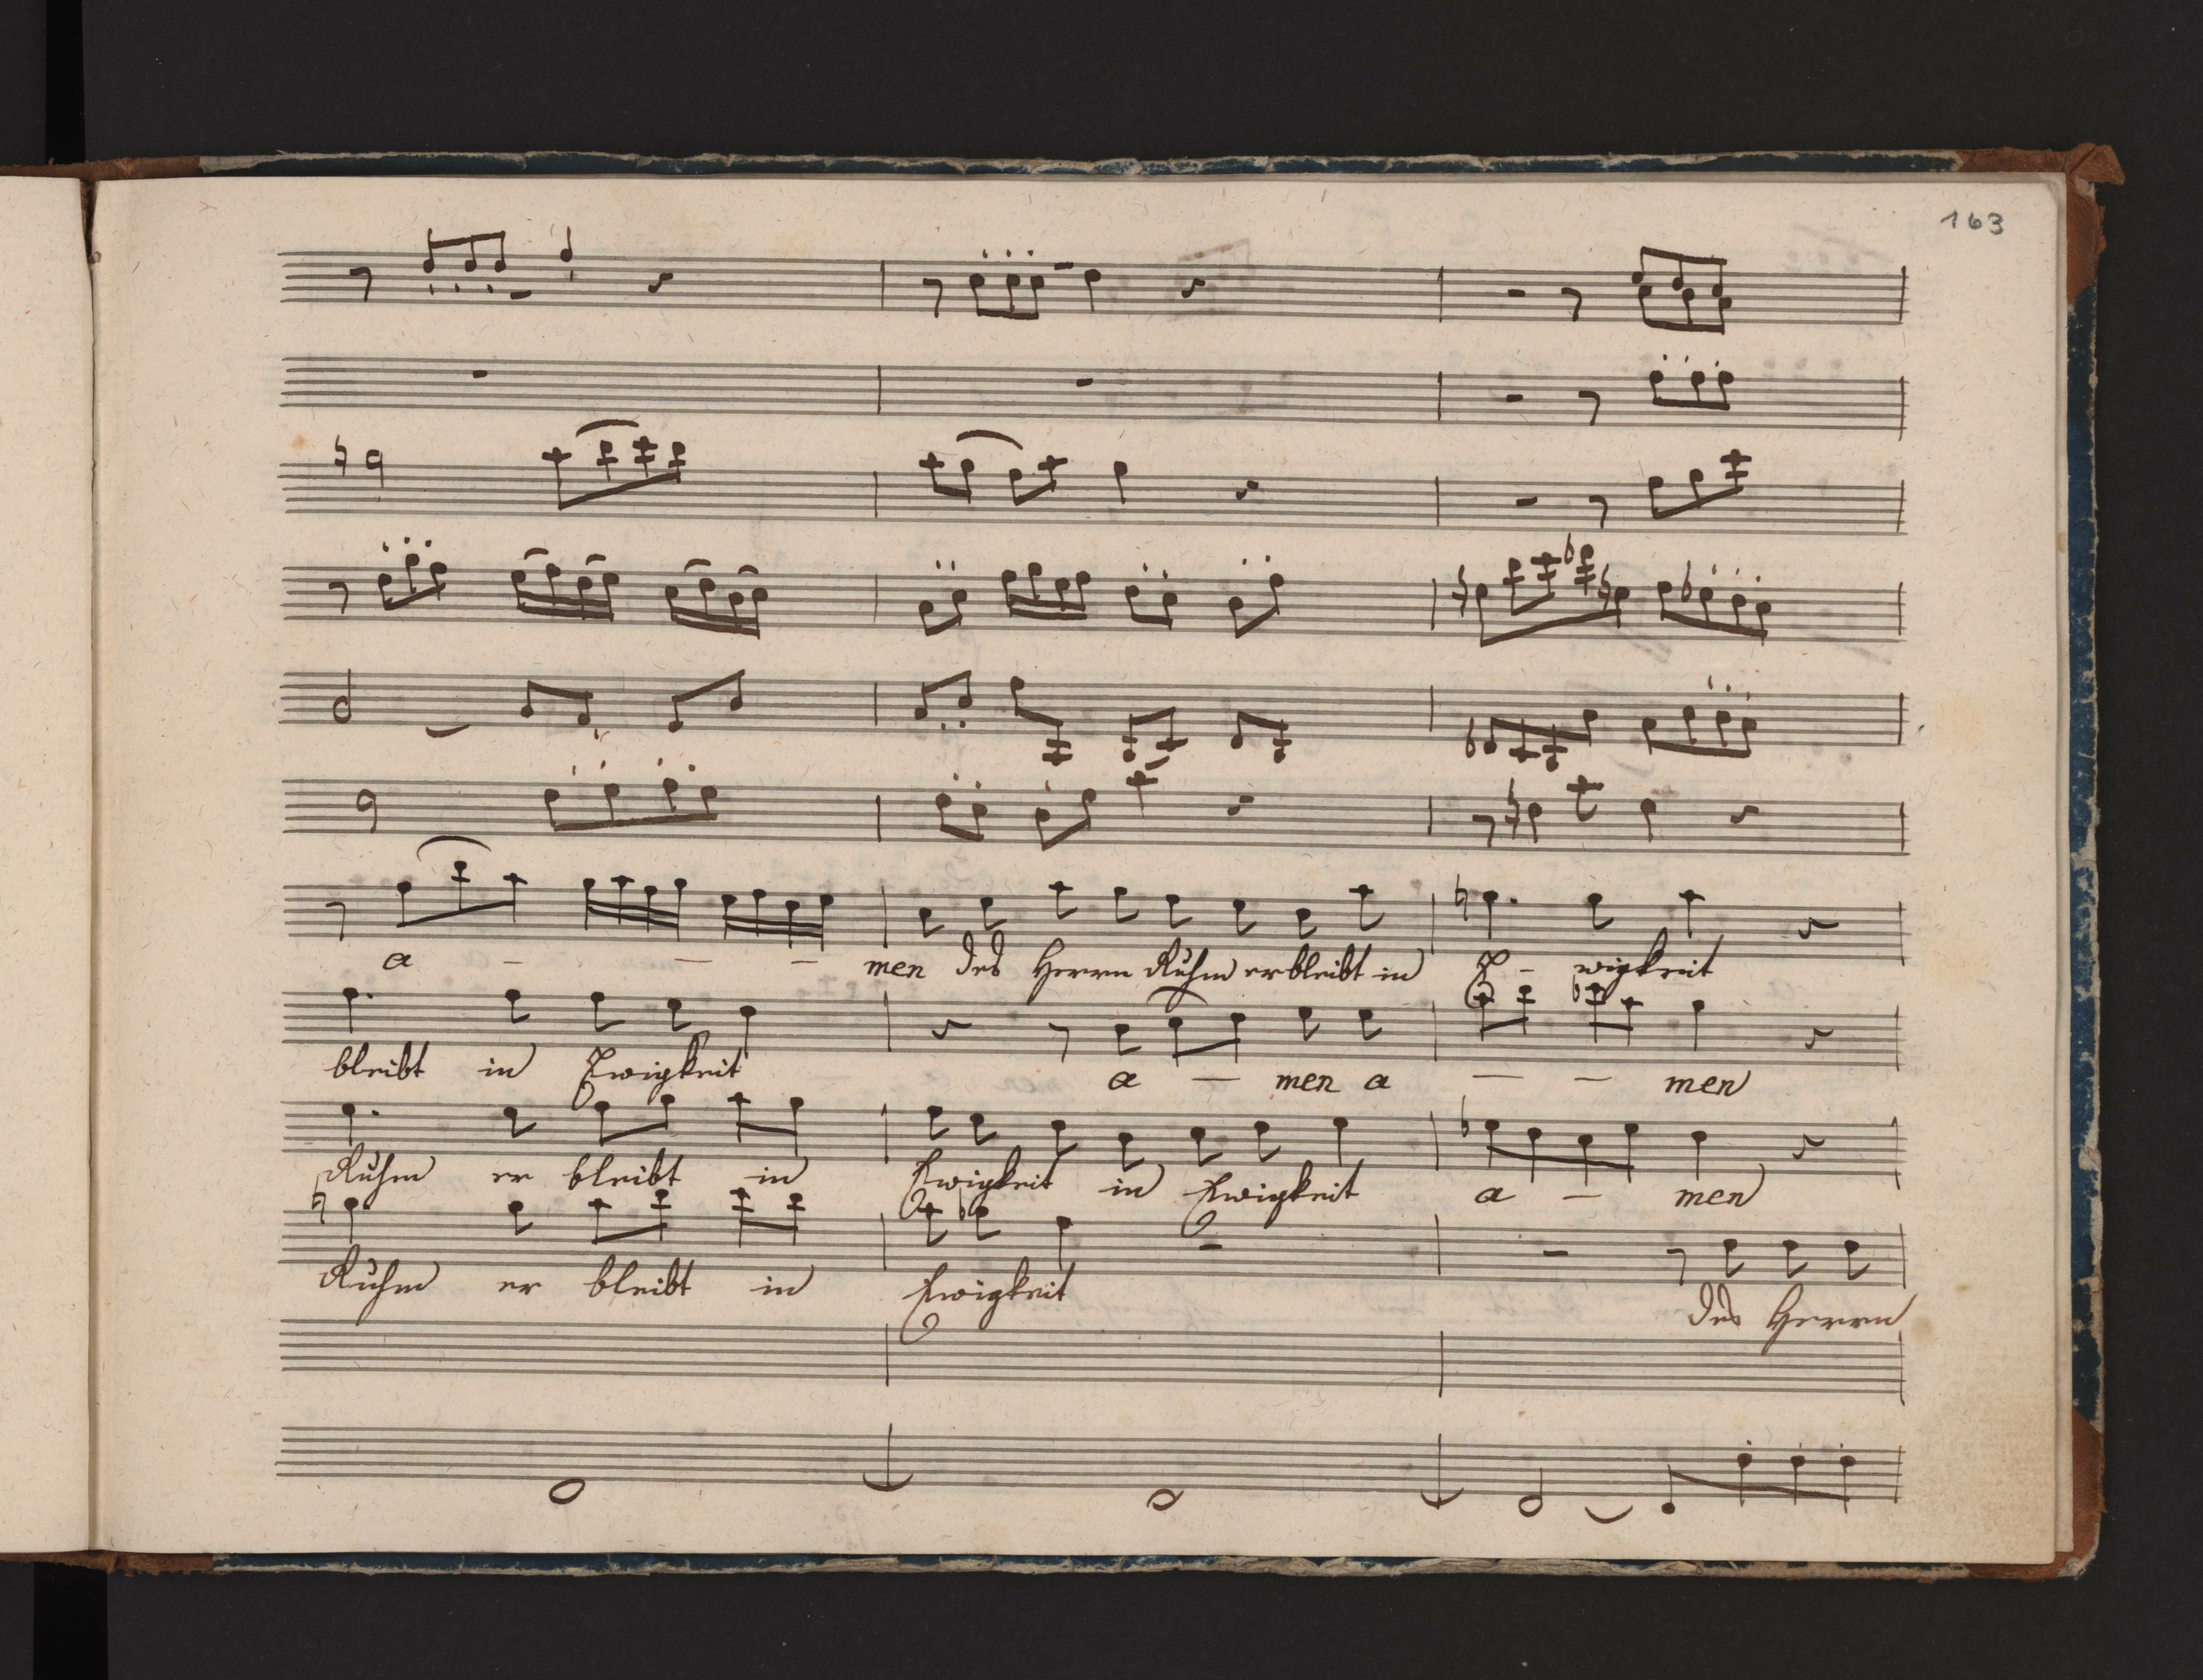 163
a - - - men des Herrn Ruhm er bleibt in E - wigkeit
bleibt in Ewigkeit a - men a - - men
Ruhm er bleibt in Ewigkeit in Ewigkeit a - men
Ruhm er bleibt in Ewigkeit des Herrn